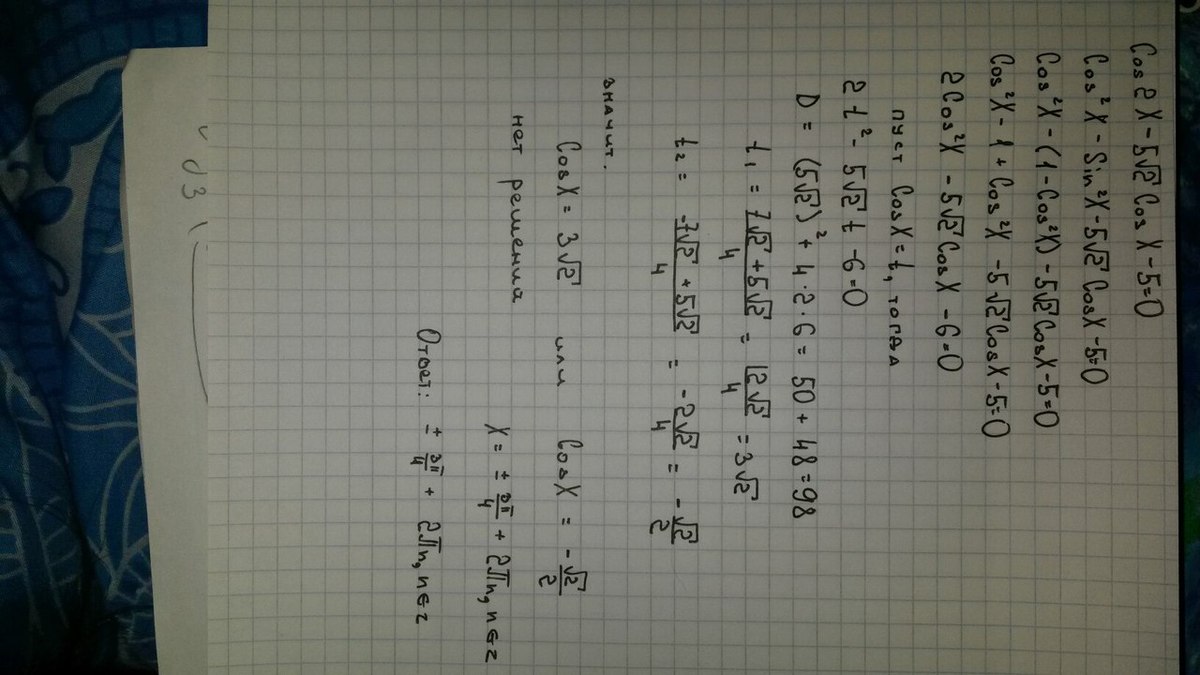 Cos2X - 5√2 Cos X - 5=0
Cos²X - Sin²X - 5√2 CosX - 5=0
Cos²X - (1 - Cos²X) - 5√2 CosX - 5=0
Cos²X - 1 + Cos²X - 5√2 CosX - 5=0
2Cos²X - 5√2 CosX - 6=0
пуст CosX = t, тогда
2t² - 5√2 t - 6=0
D = (5√2)² + 4·2·6 = 50 + 48 = 98
t₁ = (7√2 + 5√2)/4 = 12√2/4 = 3√2
t₂ = (-7√2 + 5√2)/4 = -2√2/4 = -√2/2
значит.
CosX = 3√2 или CosX = -√2/2
нет решения X = ± 3π/4 + 2πn, n∈z
Ответ: ± 3π/4 + 2πn, n∈z